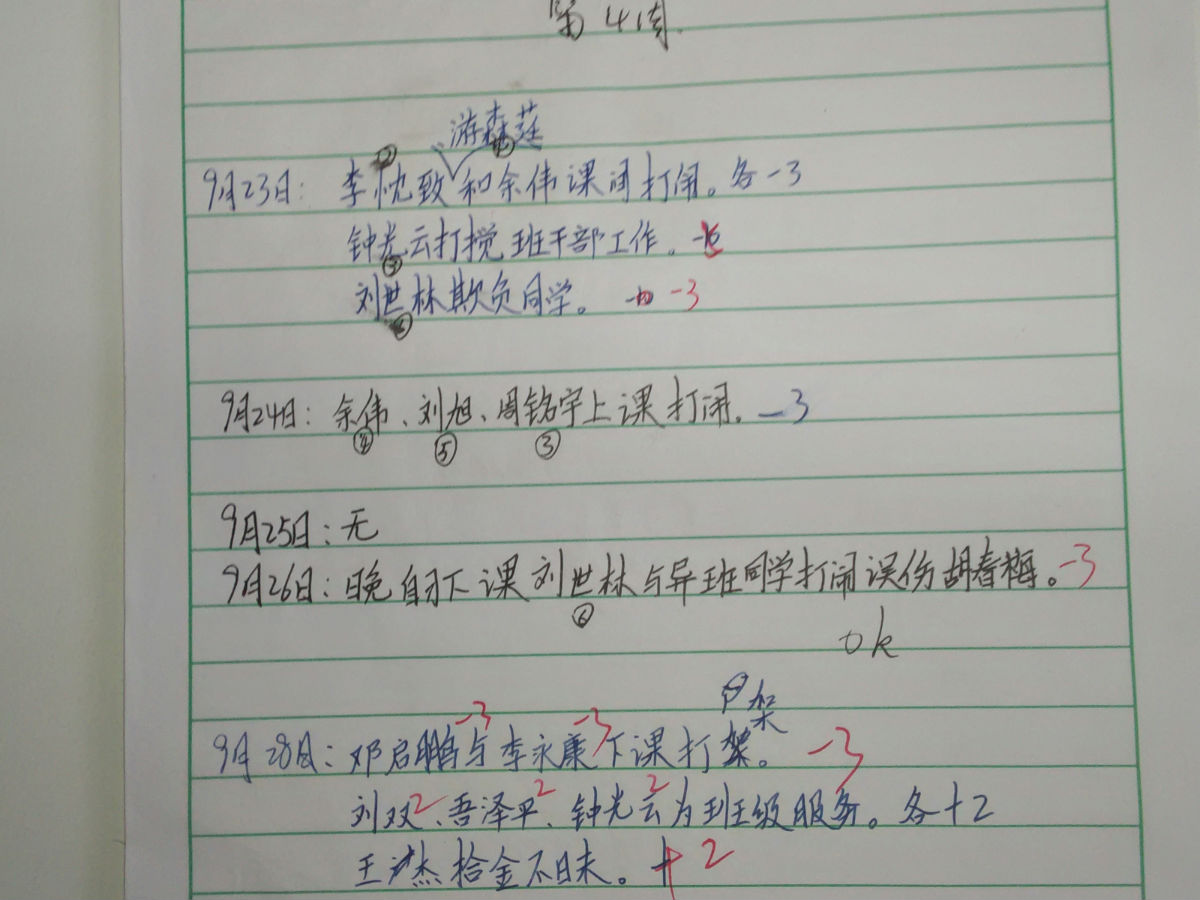 第4周
游森莲
9月23日: 李忱致和余伟课间打闹。各-3
钟光云打搅班干部工作。
刘世林欺负同学。 -3
9月24日: 余伟、刘旭、周铭宇上课打闹. -3
④ ⑤ ③
9月25日: 无
9月26日: 晚自习下课刘世林与异班同学打闹误伤胡春梅。-3
⑥
ok
架
-3 -3
9月28日: 邓启鹏与李永康下课打架。 -3
刘双2、吾泽平2、钟光云2为班级服务。各+2
王杰拾金不日未。+2